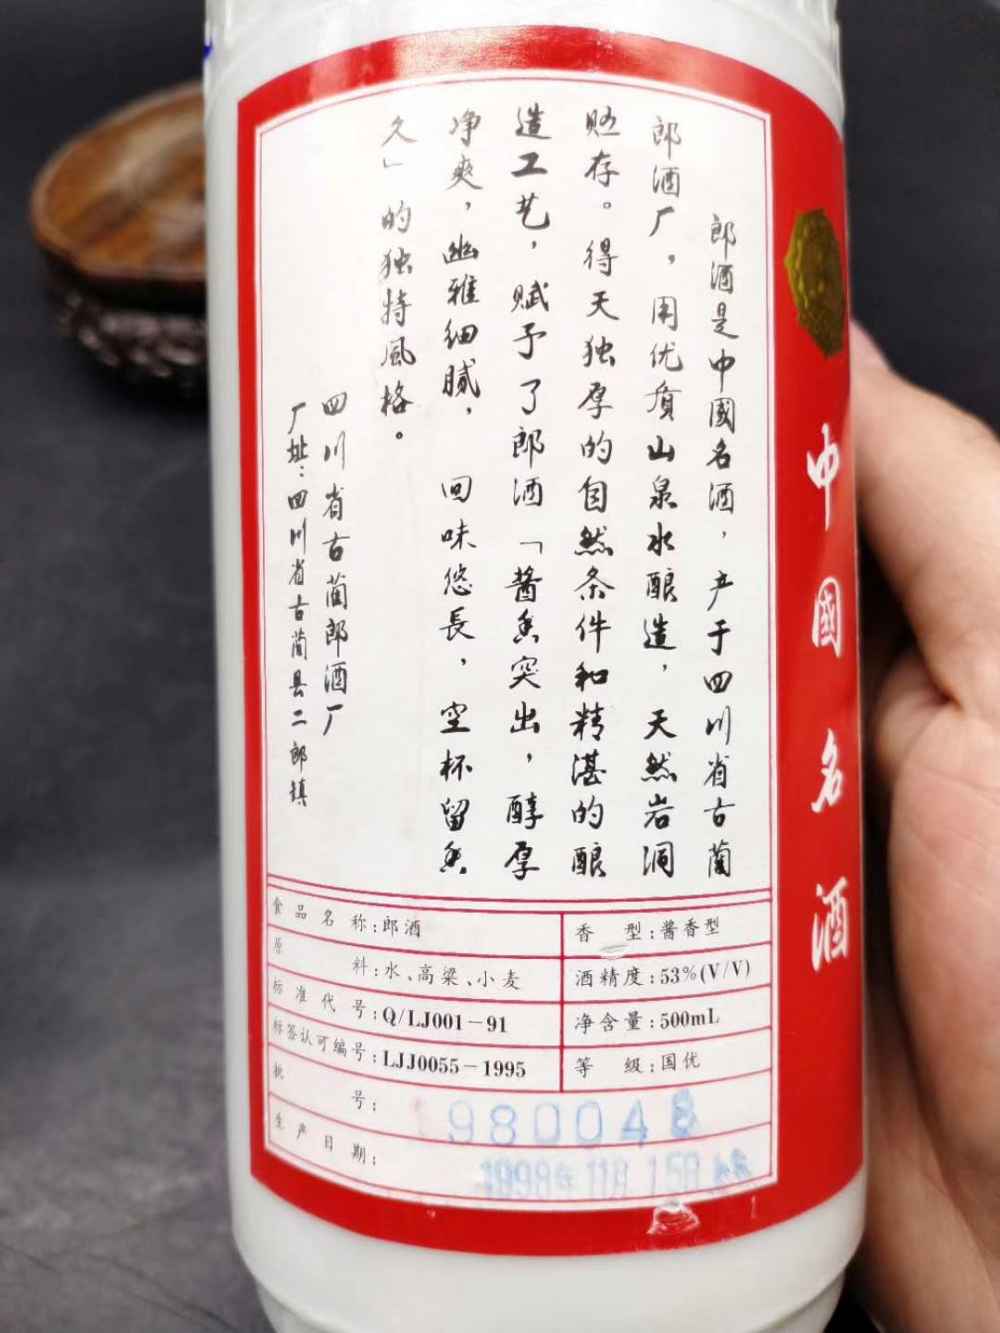 郎酒是中國名酒，产于四川省古蔺
郎酒厂。用优质山泉水酿造，天然岩洞
贮存。得天独厚的自然条件和精湛的酿
造工艺，赋予了郎酒「酱香突出，醇厚
净爽，幽雅细腻，回味悠長，空杯留香
久」的独特風格。
四川省古蔺郎酒厂
厂址：四川省古蔺县二郎镇
食品名称:郎酒
香型:酱香型
原料:水、高梁、小麦
酒精度:53%(V/V)
标准代号:Q/LJ001-91
净含量:500mL
标签认可编号:LJJ0055-1995
等级:国优
批号: 980048
生产日期: 1998年11月15日
中國名酒